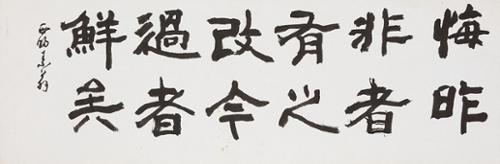 悔昨
非者
有之
改今
過者
鮮矣